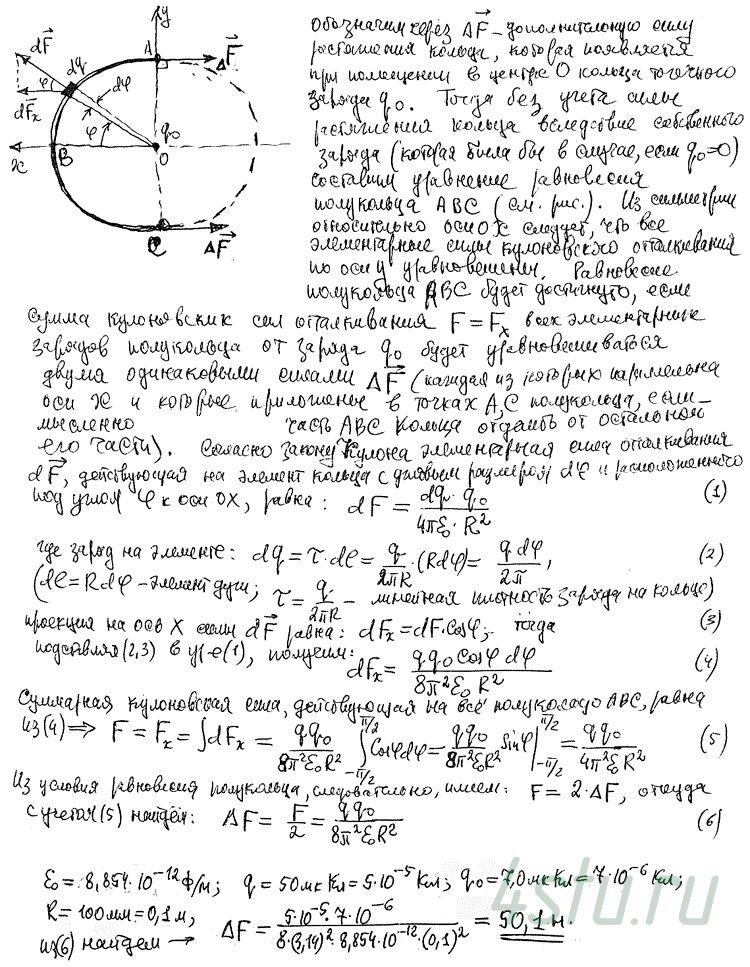 y
dF
dq
A
ΔF
φ
dφ
dFx
φ
q₀
x
B
O
C
ΔF
Обозначим через ΔF – дополнительную силу
растяжения кольца, которая появляется
при помещении в центре O кольца точечного
заряда q₀. Тогда без учета силы
растяжения кольца вследствие собственного
заряда (которая была бы в случае, если q₀=0)
составим уравнение равновесия
полукольца ABC (см. рис.). Из симметрии
относительно оси OX следует, что все
элементарные силы кулоновского отталкивания
по оси y уравновешены. Равновесие
полукольца ABC будет достигнуто, если
сумма кулоновских сил отталкивания F = Fx всех элементарных
зарядов полукольца от заряда q₀ будет уравновешиваться
двумя одинаковыми силами ΔF (каждая из которых параллельна
оси x и которые приложены в точках A, C полукольца, если
мысленно часть ABC кольца отделить от остальной
его части). Согласно закону Кулона элементарная сила отталкивания
dF, действующая на элемент кольца с угловым размером dφ и расположенного
под углом φ к оси OX, равна: dF = dq·q₀ / 4πε₀·R² (1)
где заряд на элементе: dq = τ·dℓ = q/2πR·(Rdφ) = q dφ/2π, (2)
(dℓ = Rdφ – элемент дуги; τ = q/2πR – линейная плотность заряда на кольце)
проекция на ось X силы dF равна: dFx = dF·cosφ; тогда (3)
подставляя (2,3) в ур-е (1), получим: dFx = qq₀cosφdφ / 8π²ε₀R² (4)
Суммарная кулоновская сила, действующая на всё полукольцо ABC, равна
из (4) ⇒ F = Fx = ∫dFx = qq₀/8π²ε₀R² ∫_{-π/2}^{π/2} cosφdφ = qq₀/8π²ε₀R² sinφ|_{-π/2}^{π/2} = qq₀/4π²ε₀R² (5)
Из условия равновесия полукольца, следовательно, имеем: F = 2·ΔF, откуда
с учетом (5) найдем: ΔF = F/2 = qq₀/8π²ε₀R² (6)
ε₀ = 8,854·10⁻¹² Ф/м; q = 50 мкКл = 5·10⁻⁵ Кл; q₀ = 7,0 мкКл = 7·10⁻⁶ Кл;
R = 100 мм = 0,1 м,
из (6) найдем → ΔF = 5·10⁻⁵·7·10⁻⁶ / 8·(3,14)²·8,854·10⁻¹²·(0,1)² = 50,1 н.
4stu.ru